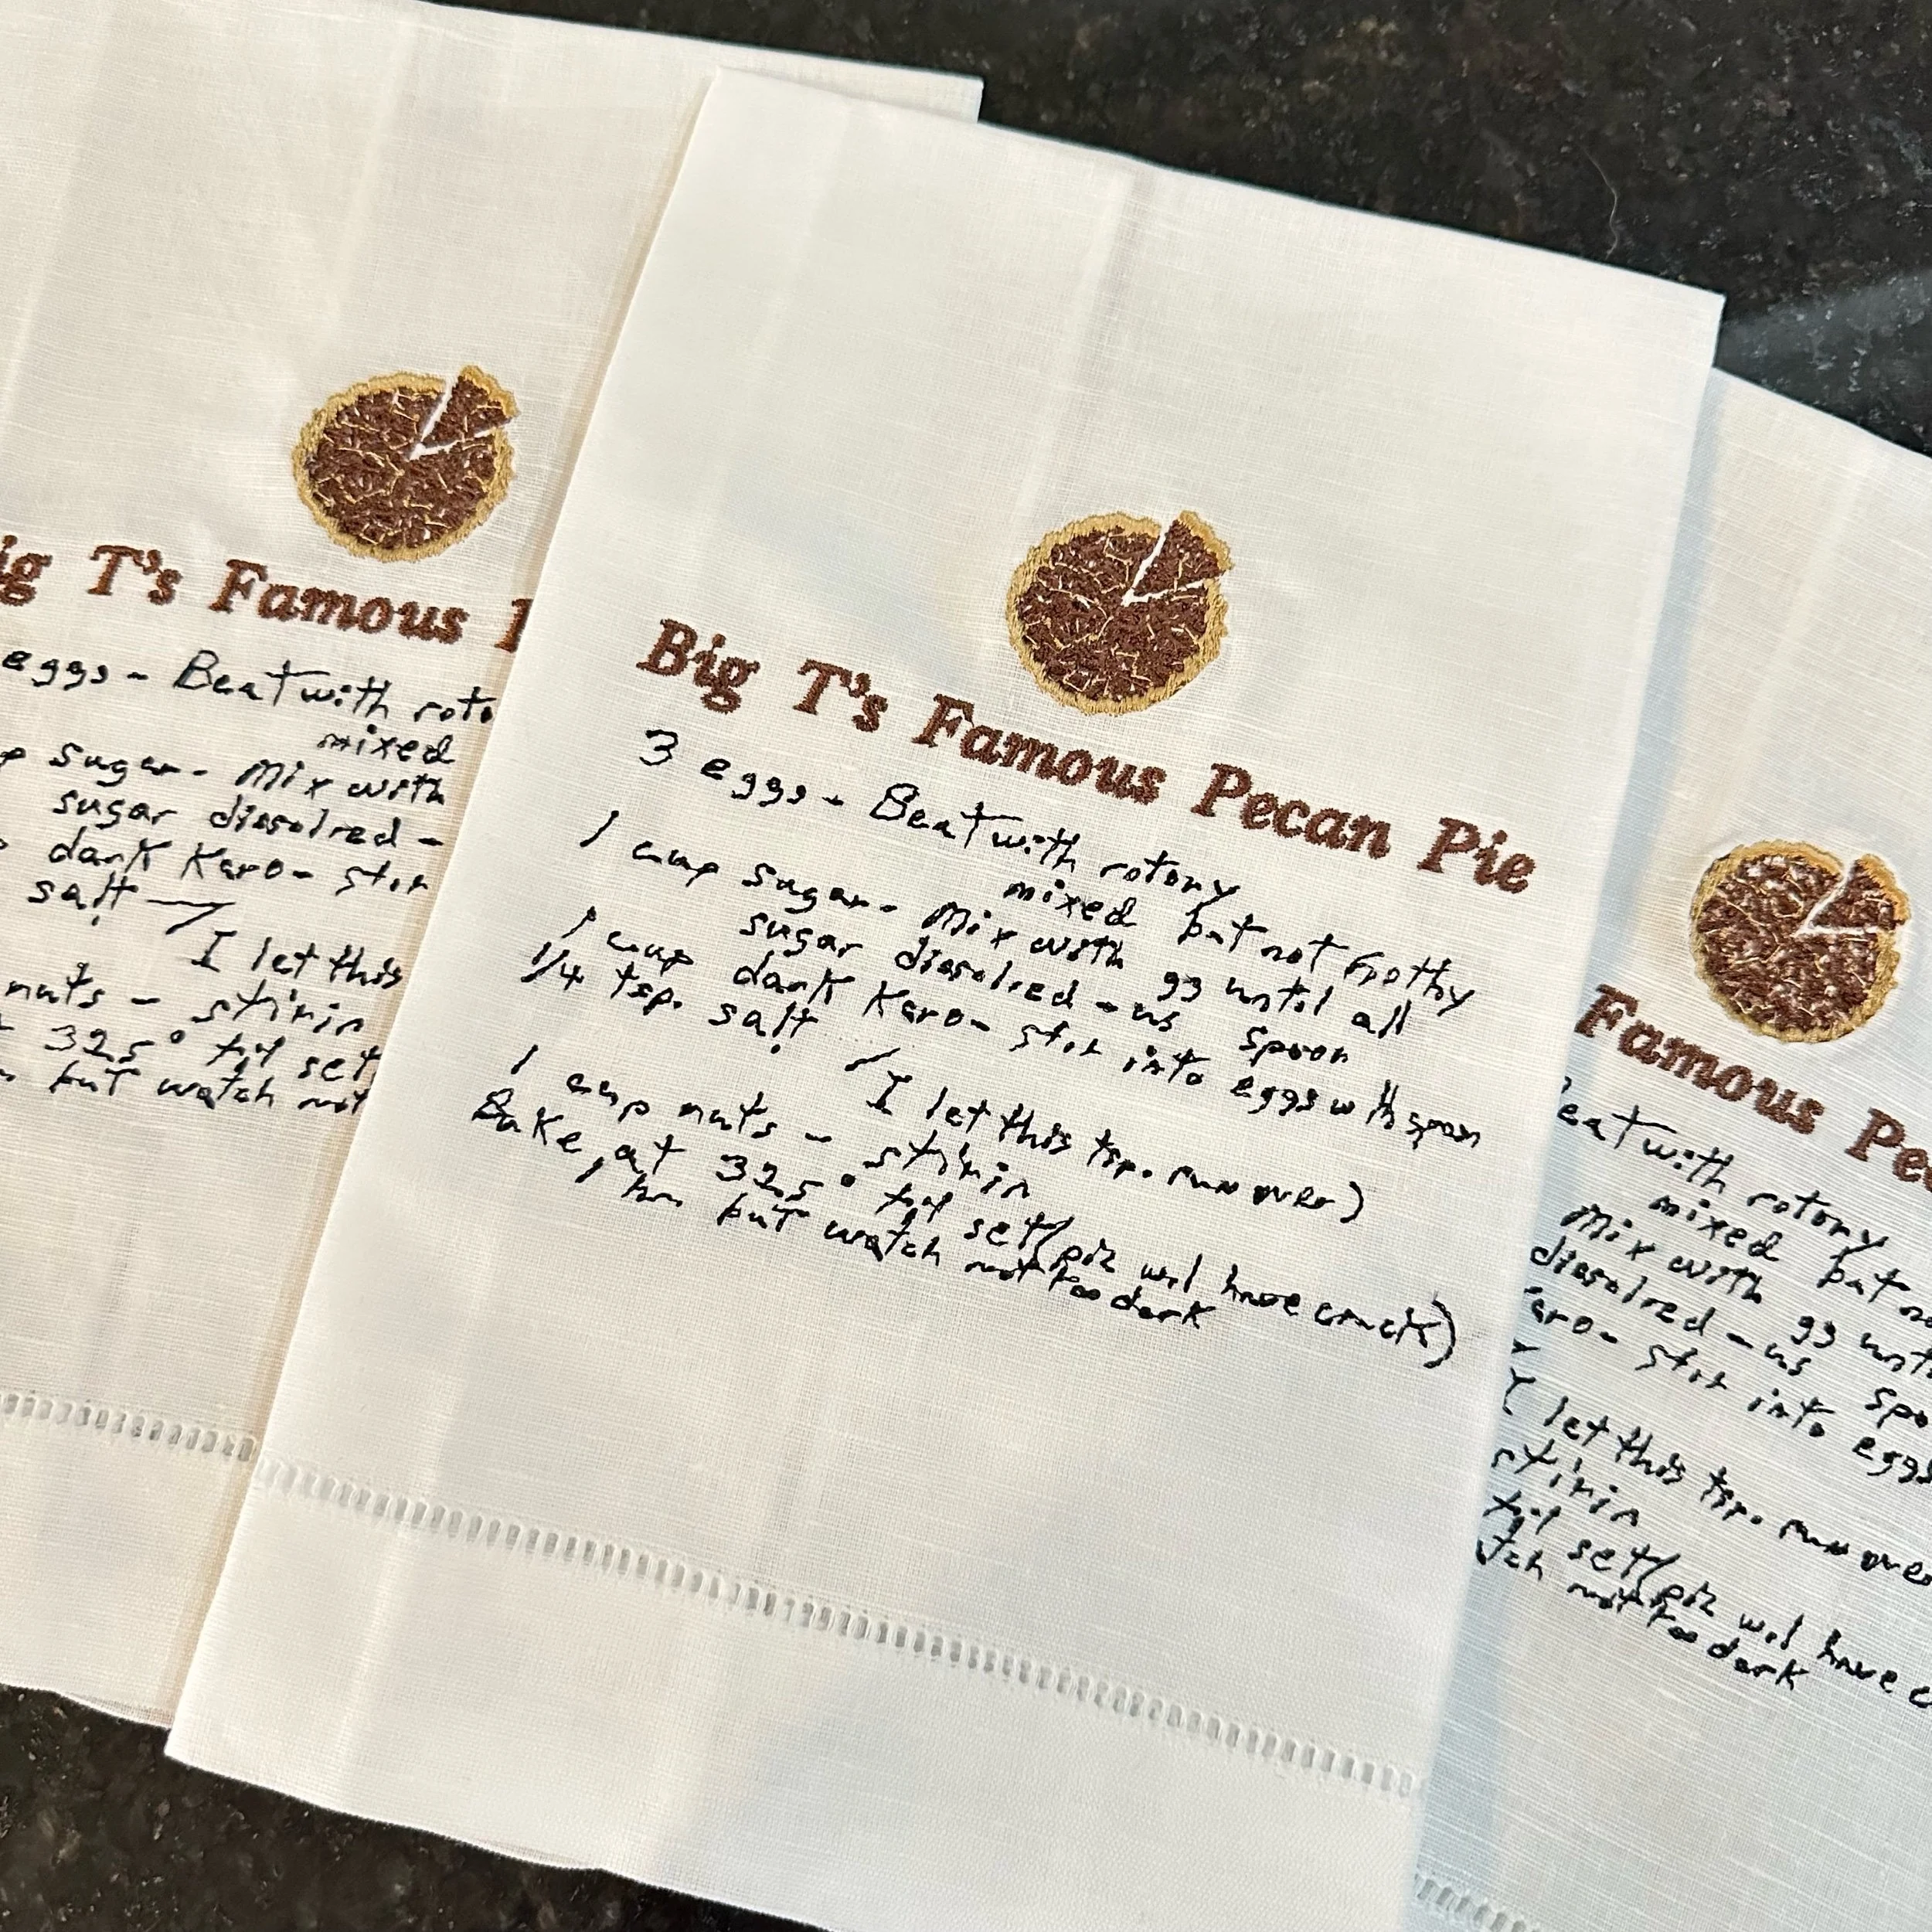 Big T's Famous Pecan Pie
3 eggs - Beat with rotory
mixed but not frothy
1 cup sugar - Mix with gg until all
sugar dissolved - us spoon
1 cup dark Karo - stir into eggs with spoon
1/4 tsp. salt
I let this tsp. run over)
1 cup nuts - stir in
Bake at 325° til set/pie will have crack)
1 hr but watch not too dark
ig T's Famous
eggs - Beat with roto
mixed
p sugar - Mix with
sugar dissolved -
dark Karo - stir
salt
I let this
nuts - stir in
325° til set
but watch not
Famous Pec
Beat with rotory
mixed but no
Mix with gg unti
dissolved - us spo
aro - stir into eggs
I let this tsp. run over
stir in
til set/pie will have c
tch not too dark